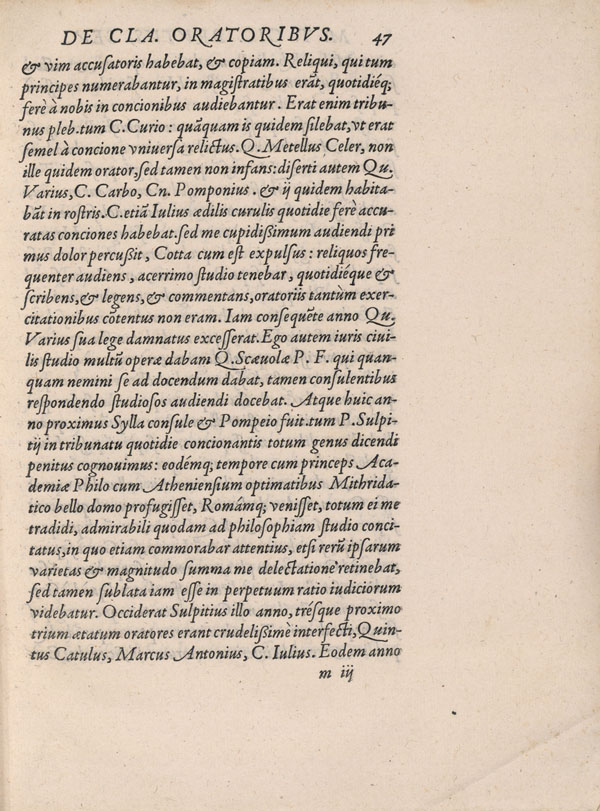 DE CLA. ORATORIBVS. 47
& vim accusatoris habebat, & copiam. Reliqui, qui tum
principes numerabantur, in magistratibus erāt, quotidiéq;
ferè à nobis in concionibus audiebantur. Erat enim tribu-
nus pleb.tum C.Curio: quāquam is quidem silebat, vt erat
semel à concione vniuersa relictus. Q. Metellus Celer, non
ille quidem orator, sed tamen non infans: diserti autem Qu.
Varius, C. Carbo, Cn. Pomponius. & ij quidem habita-
bāt in rostris. C. etiā Iulius ædilis curulis quotidie ferè accu-
ratas conciones habebat. sed me cupidissimum audiendi pri
mus dolor percußit, Cotta cum est expulsus: reliquos fre-
quenter audiens, acerrimo studio tenebar, quotidiéque &
scribens, & legens, & commentans, oratoriis tantùm exer-
citationibus cōtentus non eram. Iam consequēte anno Qu.
Varius sua lege damnatus excesserat. Ego autem iuris ciui-
lis studio multū operæ dabam Q. Scæuolæ P. F. qui quan-
quam nemini se ad docendum dabat, tamen consulentibus
respondendo studiosos audiendi docebat. Atque huic an-
no proximus Sylla consule & Pompeio fuit. tum P. Sulpi-
tij in tribunatu quotidie concionantis totum genus dicendi
penitus cognouimus: eodémq; tempore cum princeps Aca-
demiæ Philo cum Atheniensium optimatibus Mithrida-
tico bello domo profugisset, Romámq; venisset, totum ei me
tradidi, admirabili quodam ad philosophiam studio conci-
tatus, in quo etiam commorabar attentius, etsi rerū ipsarum
varietas & magnitudo summa me delectatione retinebat,
sed tamen sublata iam esse in perpetuum ratio iudiciorum
videbatur. Occiderat Sulpitius illo anno, trésque proximo
trium ætatum oratores erant crudelißimè interfecti, Quin-
tus Catulus, Marcus Antonius, C. Iulius. Eodem anno
m iij